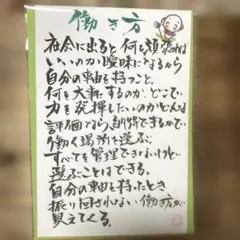 働き方
社会に出ると何を頑張れば
いいのか曖昧になるから
自分の軸を持つこと。
何を大事にするのか、どこで
力を発揮したいのか、どんな
評価なら納得できるかで
働く場所を選ぶ。
すべてを管理できないけど
選ぶことはできる。
自分の軸を持ったとき
振り回されない働き方が
見えてくる。